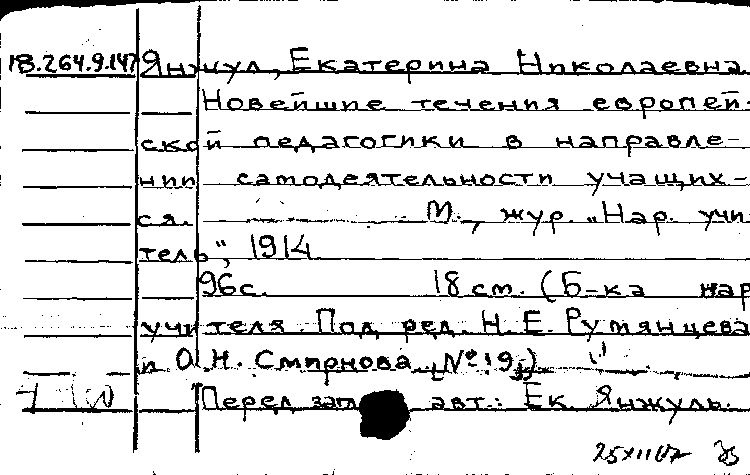 18.264.9.147 Янжул, Екатерина Николаевна
Новейшие течения европей-
ской педагогики в направле-
нии самодеятельности учащих-
ся. М., жур. „Нар. учи
тель", 1914
96с. 18 см. (Б-ка нар
учителя. Под ред. Н. Е. Румянцева
и О. Н. Смирнова [№ 19])
Перед авт.: Ек. Янжуль.